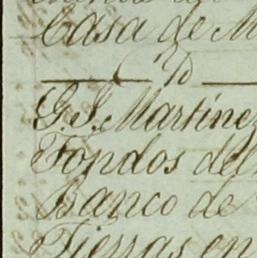 Casa de M
G. S. Martínez
Fondos del
Banco de
Tierras en